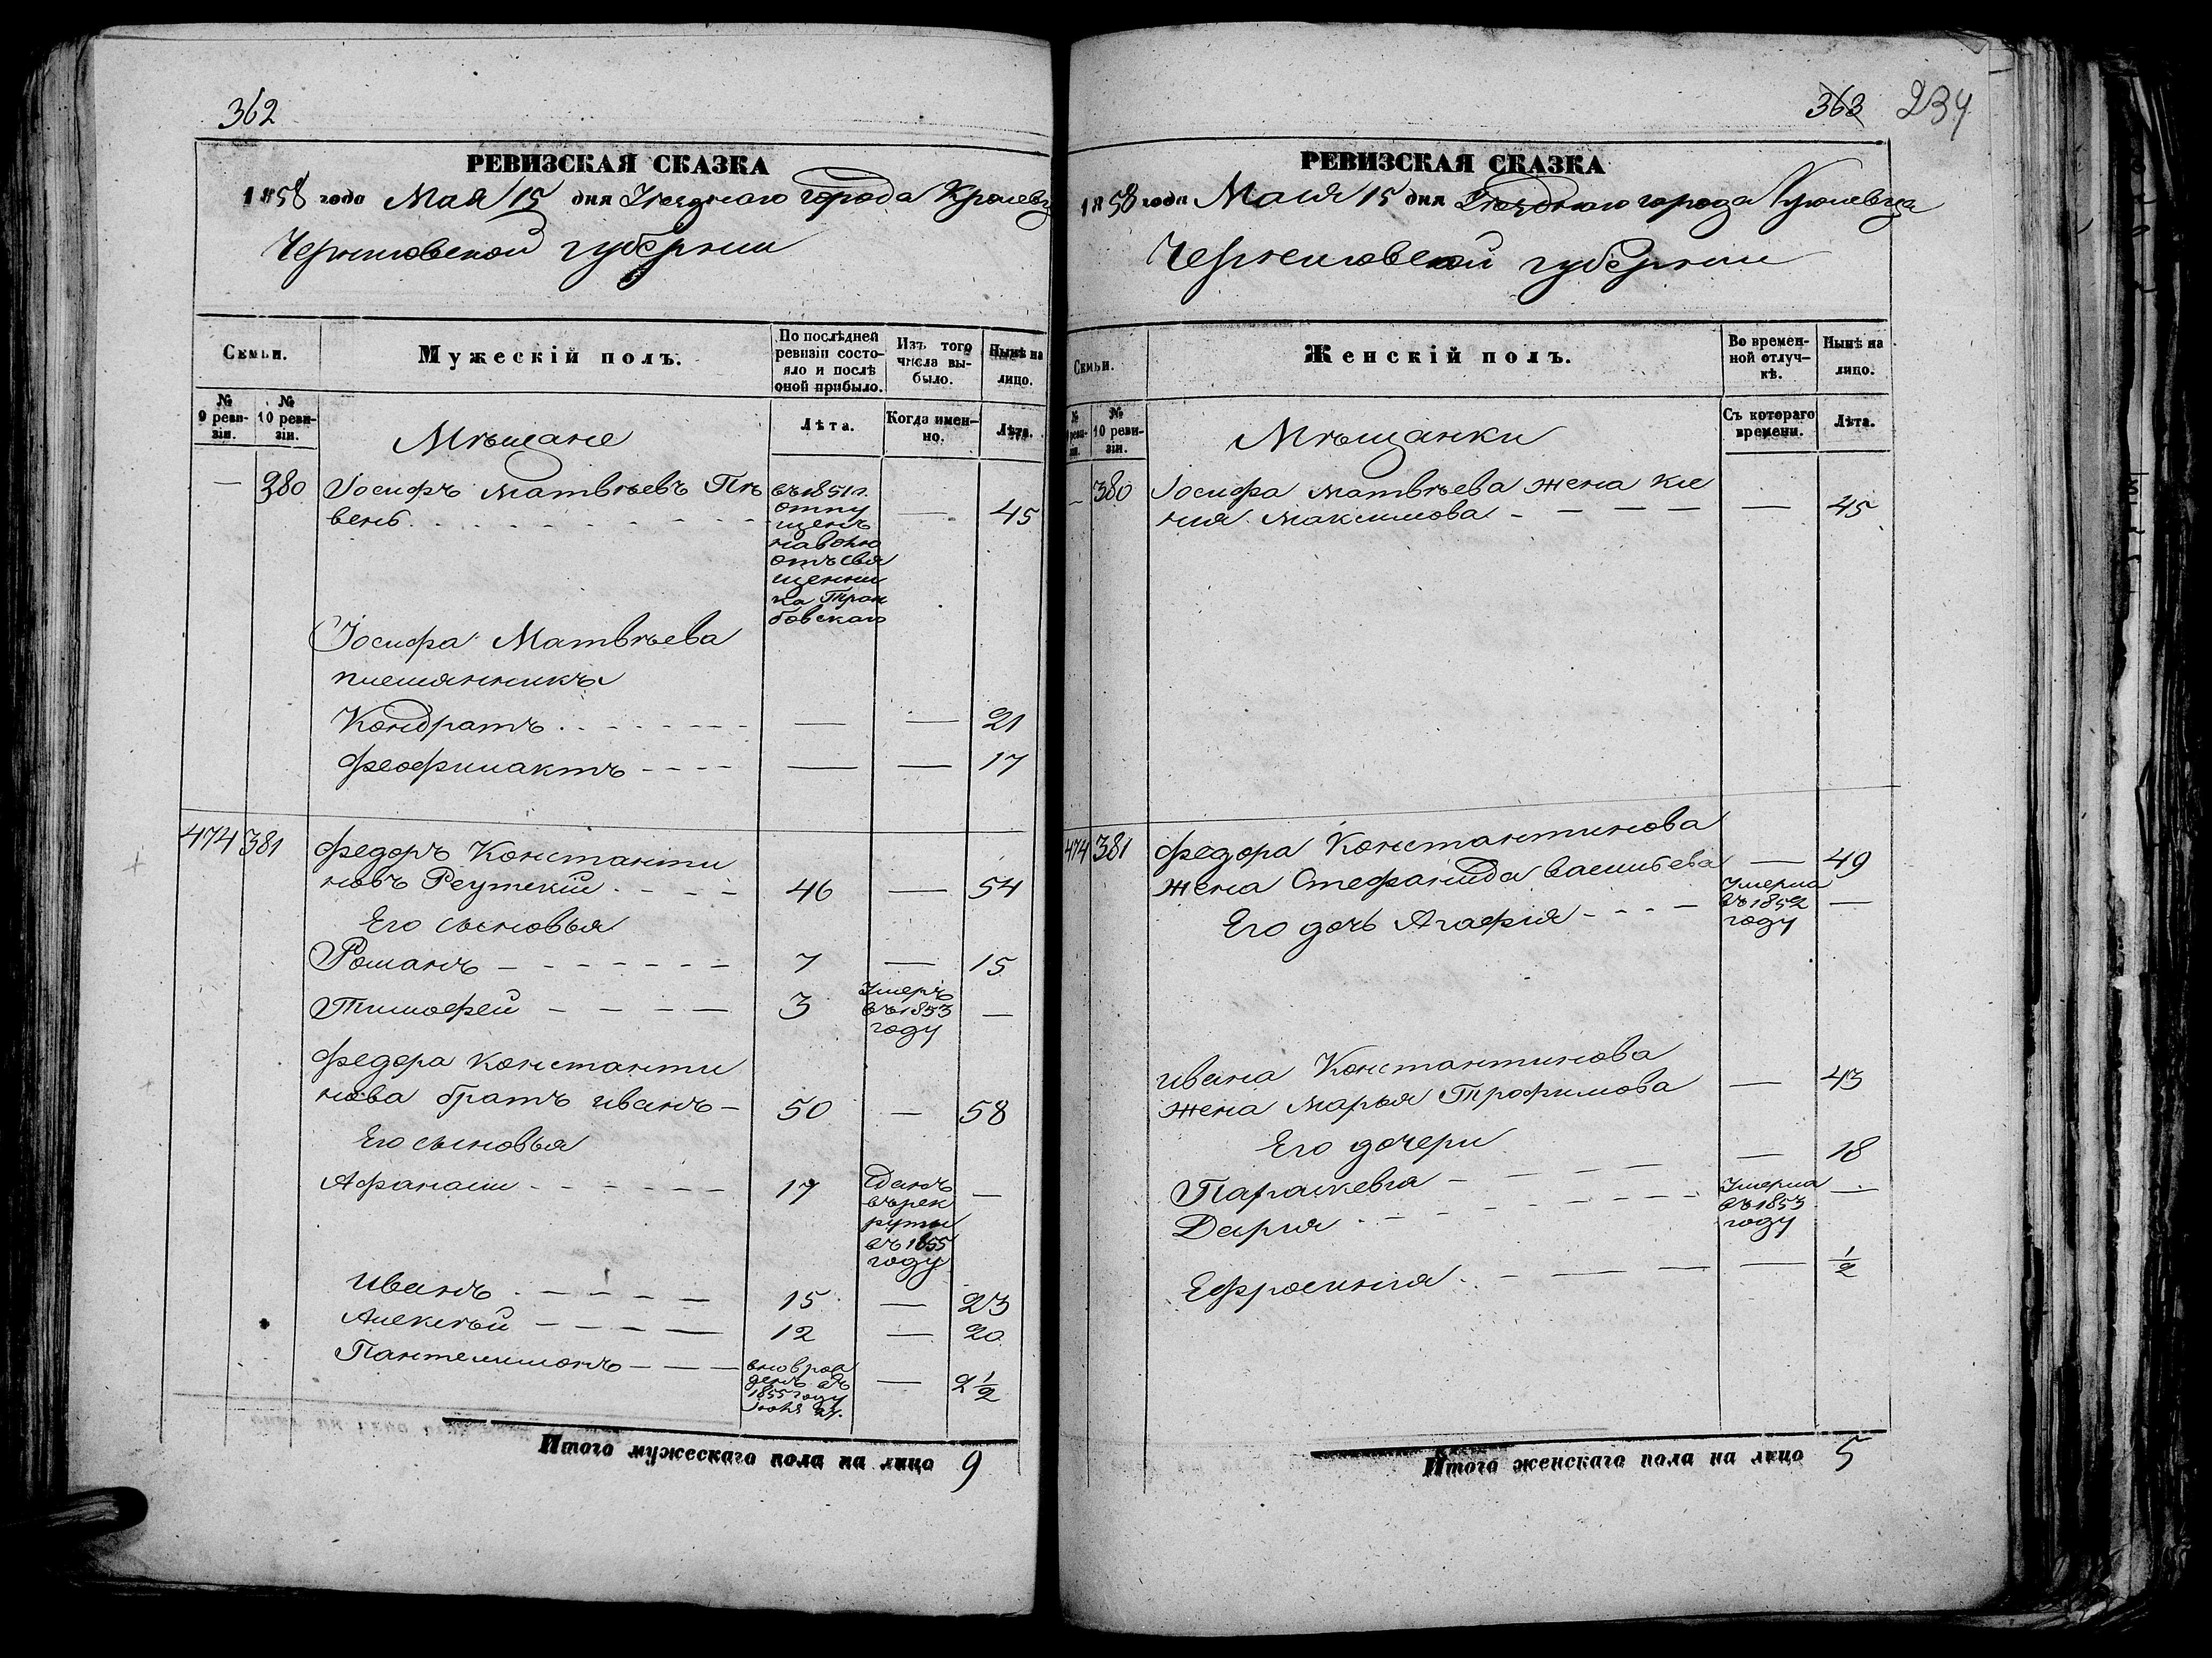 362
РЕВИЗСКАЯ СКАЗКА
1858 года Мая 15 дня Уезднаго города Кролевца
Черниговской губернии
Семьи.
Мужескій полъ.
По послѣдней ревизіи состо-
яло и послѣ оной прибыло.
Изъ того числа вы-
было.
Нынѣ на лицо.
№ 9 реви-
зіи.
№ 10 реви-
зіи.
Мѣщане
Лѣта.
Когда имен-
но.
Лѣта.
— 380 Іосифъ Матвѣевъ Пѣ
вень — 45
въ 1851 г.
отпу
щенъ
на волю
отъ свя
щенни
ка
Іосифа Матвѣева
племянникъ
Кондратъ — — 21
Феофилактъ — — 17
474 381 Федоръ Константи
новъ Реутскій 46 — 54
Его сыновья
Романъ 7 — 15
Тимофей 3 Умеръ —
въ 1853
году
Федора Константи
нова братъ Иванъ 50 — 58
Его сыновья
Афанасій 17 Сданъ —
въ рек
руты
въ 1855
году
Иванъ 15 — 23
Алексѣй 12 — 20
Пантелимонъ — 2 1/2
вновь рож
денъ въ
1855 году
Итого мужескаго пола на лицо 9
363 234
РЕВИЗСКАЯ СКАЗКА
1858 года Маія 15 дня Уезднаго города Кролевца
Черниговской губернии
Семьи.
Женскій полъ.
Во времен-
ной отлуч-
кѣ.
Нынѣ на лицо.
№ 9 реви-
зіи.
№ 10 реви-
зіи.
Мѣщанки
Съ котораго
времени.
Лѣта.
— 380 Іосифа Матвѣева жена Ксе
нія Максимова — 45
474 381 Федора Константинова
жена Стефанида Васильева — 49
Его дочь Агафія Умерла —
въ 1852
году
Ивана Константинова
жена Марья Трофимова — 43
Его дочери
Параскевія — 18
Дарія Умерла —
въ 1853
году
Ефросинія — 1/2
Итого женскаго пола на лицо 5